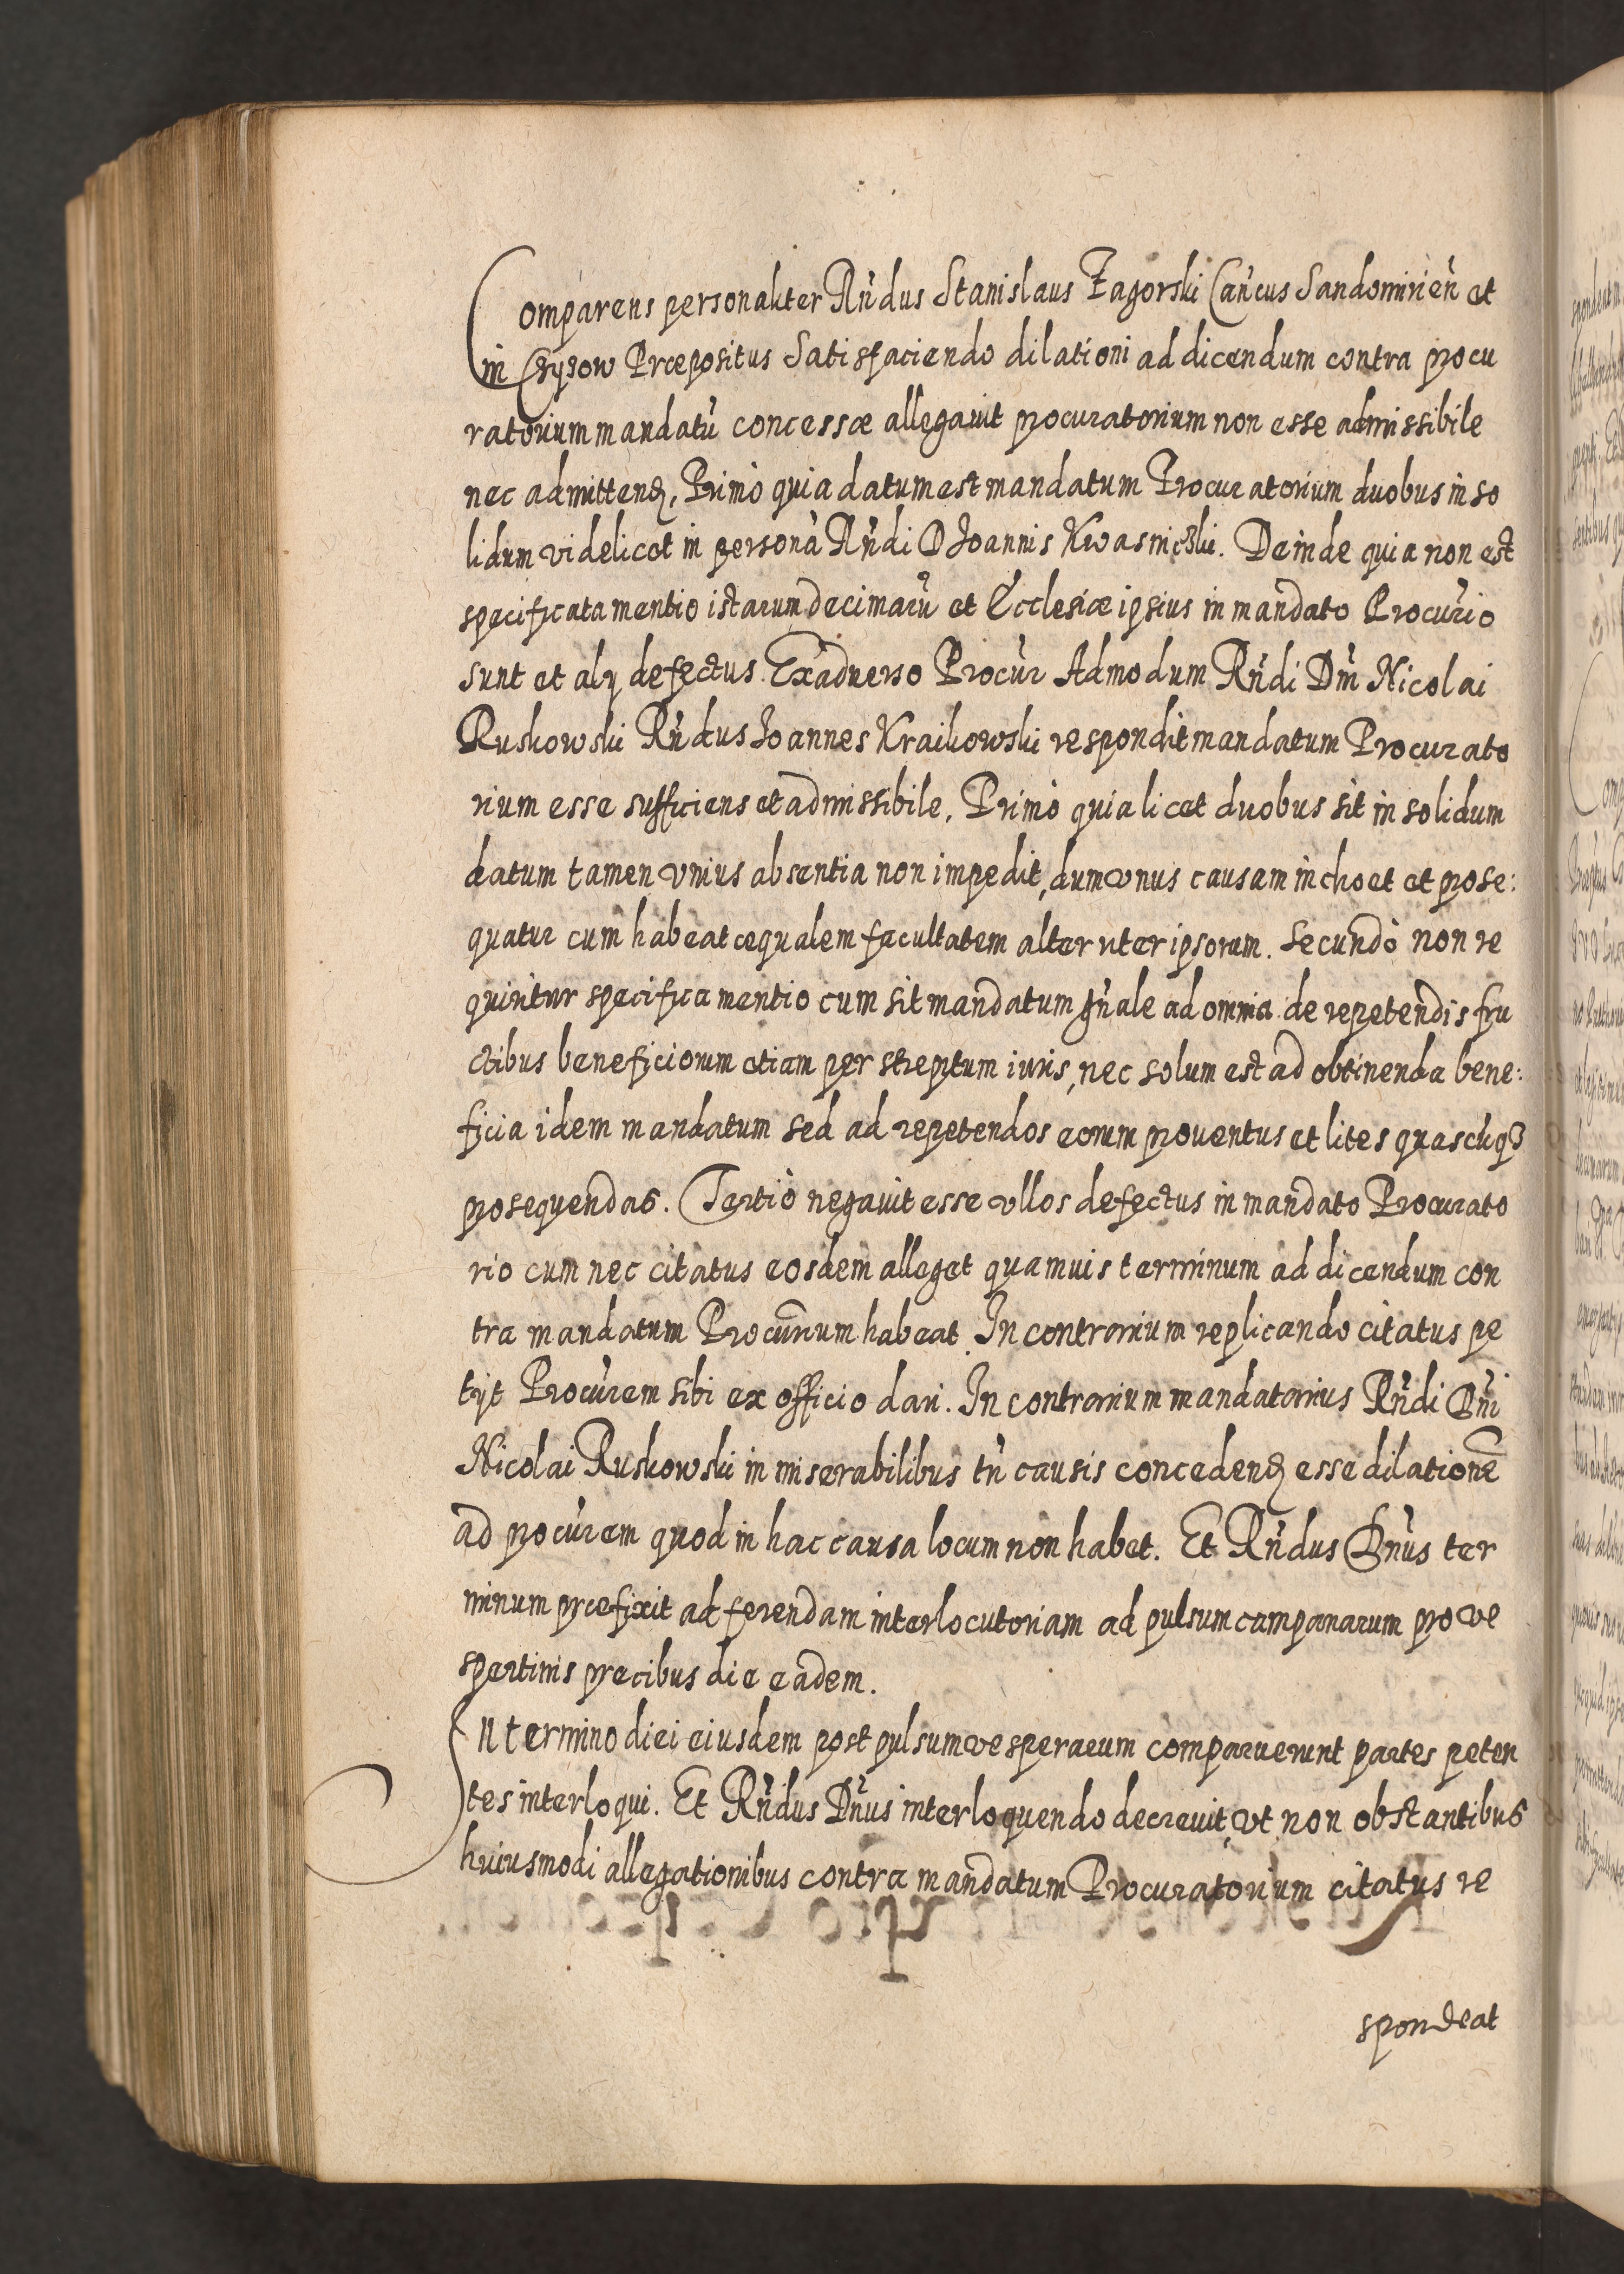 Comparens personaliter Rñdus Stanislaus Zagorski Cañcus Sandomirień et
in Chyzow Præpositus Satisfaciendo dilationi ad dicendum contra procu
ratorium mandatū concessæ allegauit procuratorium non esse admissibile
nec admittenꝗ, Primò quia datum est mandatum Procuratorium duobus in so
lidum videlicet in personà Rñdi D Joannis Kwasniczki. Deinde quia non est
specificata mentio istarum decimarū et Ecclesiæ ipsius in mandato Procūrio
sunt et alij defectus. Exaduerso Procūr Admodum Rñdi Dñi Nicolai
Ruskowski Rñdus Joannes Kraikowski respondit mandatum Procurato
rium esse sufficiens et admissibile, Primò quia licet duobus sit in solidum
datum tamen vnius absentia non impedit, dum vnus causam inchoet et prose:
quatur cum habeat æqualem facultatem alteruter ipsorum. Secundò non re
quiritur specifica mentio cum sit mandatum gñale ad omnia de repetendis fru
ctibus beneficiorum etiam per streptum iuris, nec solum est ad obtinenda bene:
ficia idem mandatum sed ad repetendos eorum prouentus et lites quascūqꝫ
prosequendas. Tertiò negauit esse vllos defectus in mandato Procurato
rio cum nec citatus eosdem alleget quamuis terminum ad dicendum con
tra mandatum Procūrium habeat. In contrarium replicando citatus pe
tijt Procūrem sibi ex officio dari. In contrarium mandatarius Rñdi Dñi
Nicolai Ruskowski in miserabilibus tñ causis concedenꝗ esse dilationē
ad procūrem quod in hac causa locum non habet. Et Rñdus Dñus ter
minum præfixit ad ferendam interlocutoriam ad pulsum campanarum pro ve
spertinis precibus die eadem.
In termino diei eiusdem post pulsum vesperarum comparuerunt partes peten
tes interloqui. Et Rñdus Dñus interloquendo decreuit, vt non obstantibus
huiusmodi allegationibus contra mandatum Procuratorium citatus re
spondeat